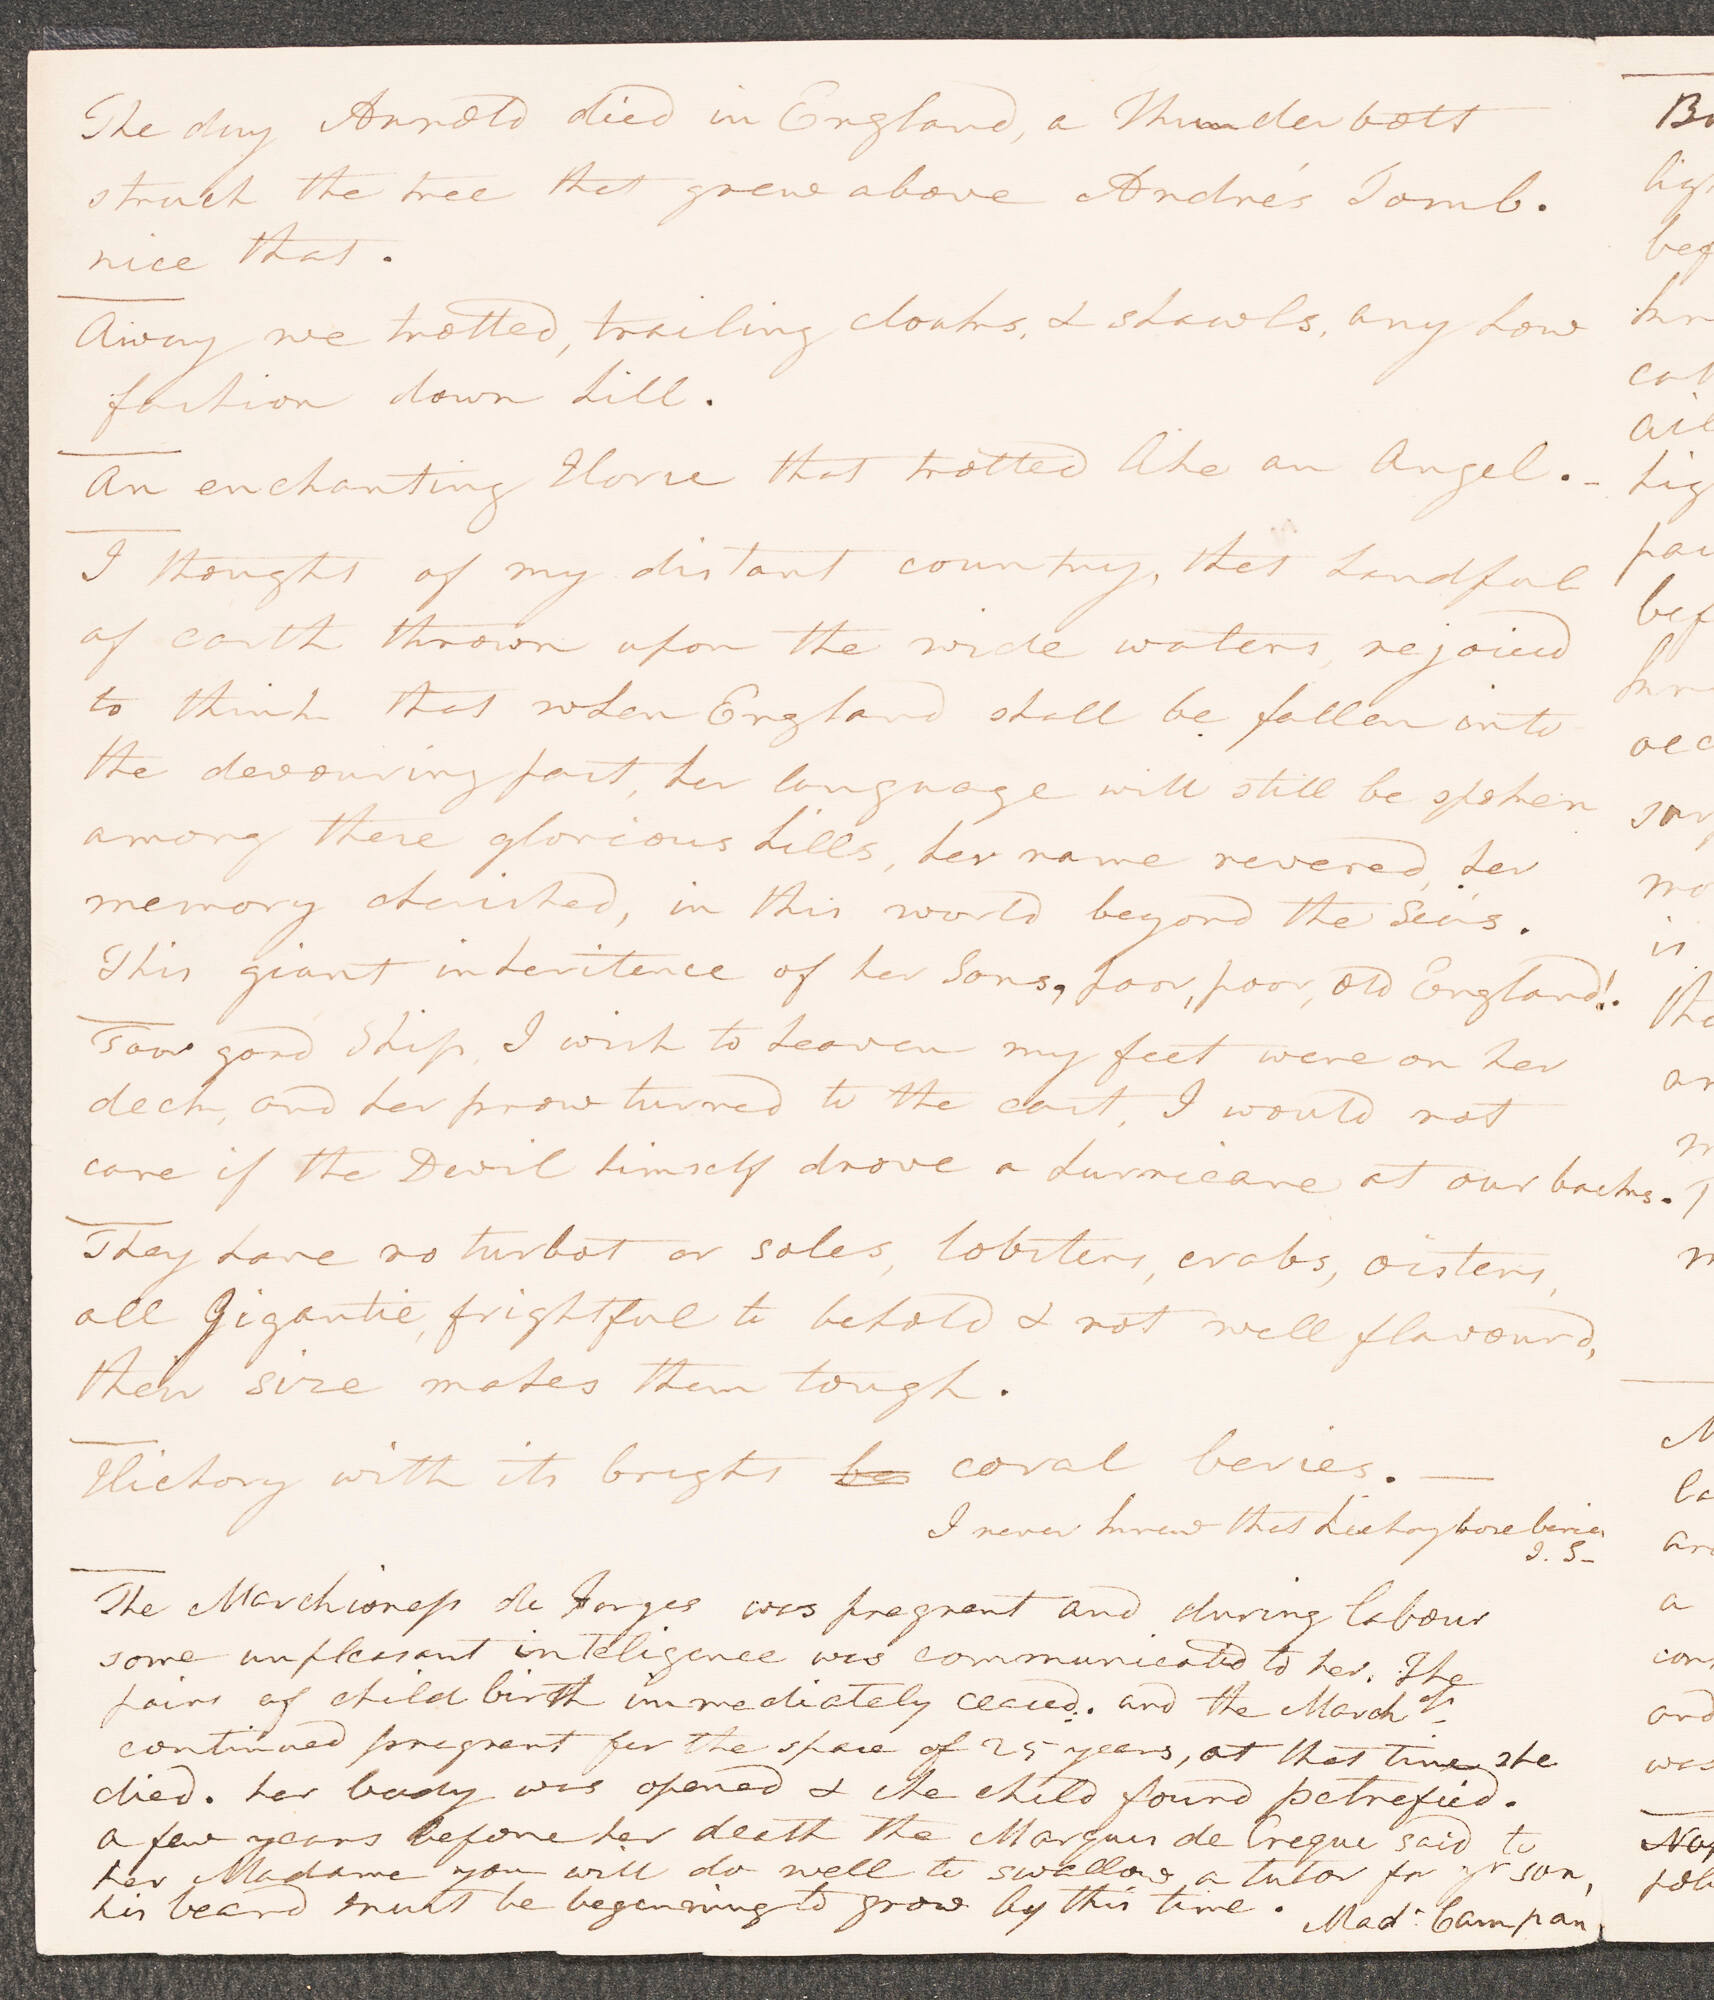 The day Arnold died in England, a Thunderbolt
struck the tree that grew above Andrés Tomb.
nice that.
Away we trotted, trailing cloaks, & shawls, any how
fashion down hill.
An enchanting Horse that trotted like an Angel. -
I thought of my distant country, that handful
of earth thrown upon the wide waters, rejoiced
to think that when England shall be fallen into
the devouring past, her language will still be spoken
among these glorious hills, her name revered, her
memory cherished, in this world beyond the Seas.
This giant inheritence of her Sons, poor, poor, old England!.
good Ship, I wish to heaven my feet were on her
deck, and her prow turned to the east, I would not
care if the Devil himself drove a hurricane at our backs.
They have no turbot or soles, lobsters, crabs, oisters,
all Gigantic, frightful to behold & not well flavourd,
their size makes them tough.
Hickory with its bright be coral beries. —
I never knew that hickory bore beries
J. S-
The Marchioness de Forges was pregnant and during labour
some unpleasant inteligence was communicated to her. The
pains of child birth immediately ceased. and the Marchss
continued pregnant for the space of 25 years, at that time she
died. her body was opened & the child found petrefied.
a few years before her death the Marquis de Creque said to
her Madame you will do well to swallow a tutor for yr son,
his beard must be beginning to grow by this time.
Mad: Campan